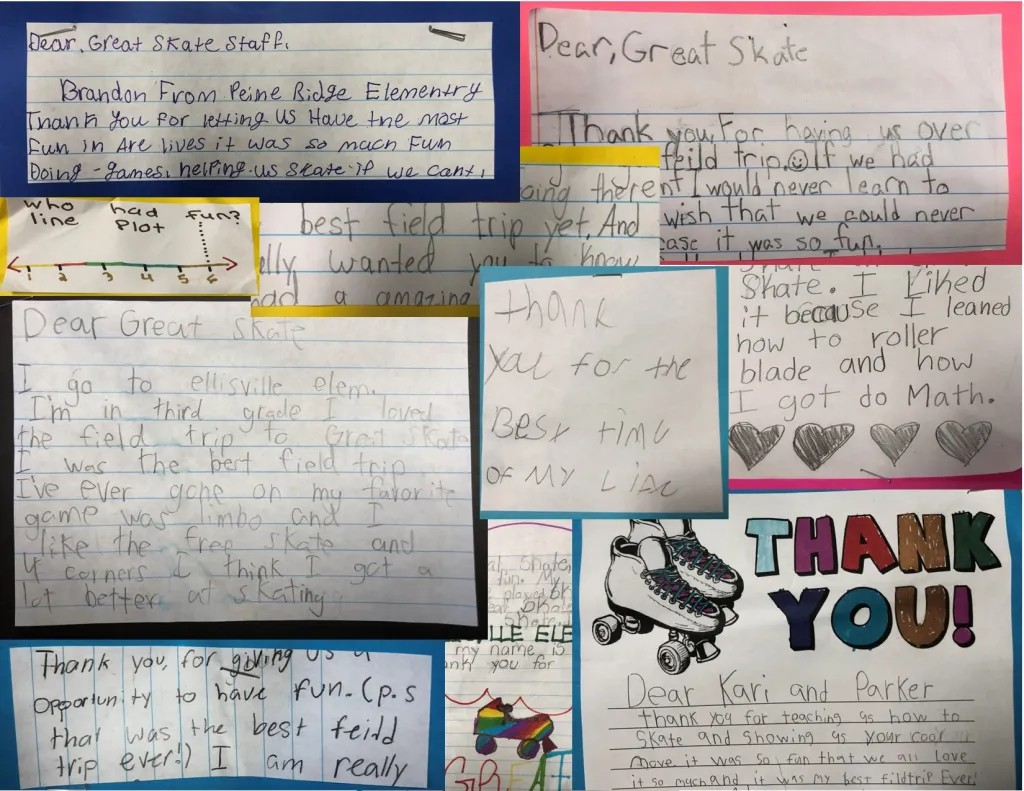 Dear, Great Skate Staff.
Brandon From Peine Ridge Elementry
Thank You For letting US Have the most
Fun in Are lives it was so much Fun
Doing -games, helping-us skate if we cant,
Dear, Great Skate
Thank you For having us over
feild trip.☺If we had
nt I would never learn to
wish that we could never
ease it was so fun.
oing there
best field trip yet. And
ally wanted you to know
had a amazing
who had fun?
line Plot
1 2 3 4 5 6
Skate. I liked
it because I leaned
how to roller
blade and how
I got do Math.
Dear Great skate
I go to ellisville elem.
I'm in third grade I loved
the field trip to Great Skate
I was the best field trip
I've ever gone on my favorite
game was limbo and I
like the free skate and
4 corners I think I got a
lot better at skating
thank
you for the
Best time
OF MY Life
at Skate,
fun. My
played
Skate
LLE ELE
my name is
ank you for
GREAT
THANK
YOU!
Dear Kari and Parker
thank you for teaching us how to
skate and showing us your cool
move it was so fun that we all love
it so much and it was my best fildtrip Ever!
Thank you, for giving us a
opportunity to have fun. (p.s
that was the best feild
trip ever!) I am really